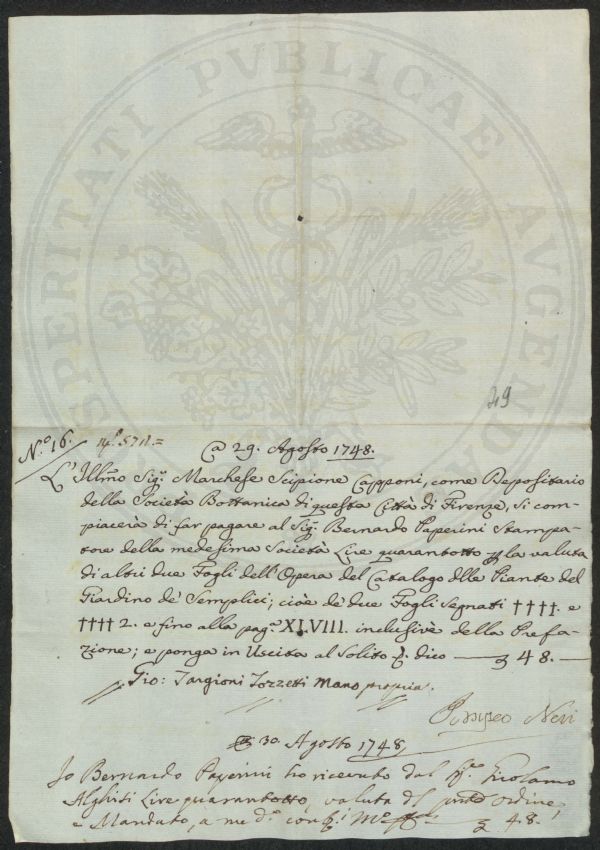 PROSPERITATI PVBLICAE AVGENDAE
49
N.º 16.
A 29. Agosto 1748.
L'Illmo Sig. Marchese Scipione Capponi, come Depositario
della Società Bottanica di questa Città di Firenze, si com-
piacerà di far pagare al Sig. Bernardo Paperini Stampa-
tore della medesima Società Lire quarantotto p la valuta
di altri due Fogli dell'Opera del Catalogo dlle Piante del
Giardino de' Semplici; cioè de' due Fogli segnati ††††. e
†††† 2. e fino alla pag.ª XLVIII. inclusivè della Prefa-
zione; e ponga in Uscita al Solito dico 48.
Gio: Targioni Tozzetti mano propria.
Pompeo Neri
30. Agosto 1748
Io Bernardo Paperini ho ricevuto dal Girolamo
Alghisi Lire quarantotto, valuta del ordine,
e Mandato, a me d.º 48.